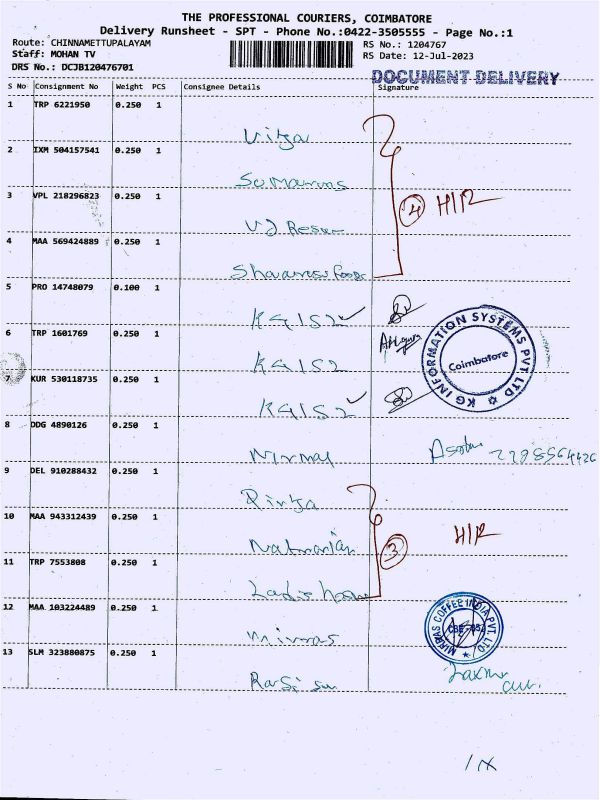 THE PROFESSIONAL COURIERS, COIMBATORE
Delivery Runsheet - SPT - Phone No.:0422-3505555 - Page No.:1
Route: CHINNAMETTUPALAYAM
RS No.: 1204767
Staff: MOHAN TV
RS Date: 12-Jul-2023
DRS No.: DCJB120476701
DOCUMENT DELIVERY
S No Consignment No Weight PCS Consignee Details Signature
1 TRP 6221950 0.250 1
2 IXM 504157541 0.250 1
3 VPL 218296823 0.250 1
4 H/R
4 MAA 569424889 0.250 1
5 PRO 14748079 0.100 1
KGIS2
6 TRP 1601769 0.250 1
KGIS2
KG INFORMATION SYSTEMS PVT. LTD
Coimbatore
7 KUR 530118735 0.250 1
KGIS2
8 DDG 4890126 0.250 1
Nirmal
9 DEL 910288432 0.250 1
10 MAA 943312439 0.250 1
3 H/R
11 TRP 7553808 0.250 1
12 MAA 103224489 0.250 1
COFFEE INDIA PVT. LTD
13 SLM 323880875 0.250 1